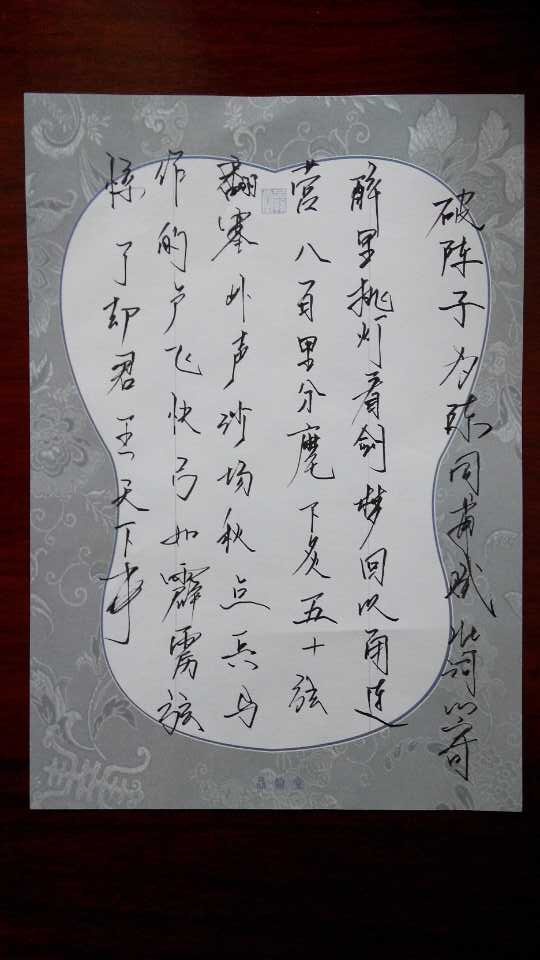 破阵子为陈同甫赋此词以寄
醉里挑灯看剑梦回吹角连
营八百里分麾下炙五十弦
翻塞外声沙场秋点兵马
作的卢飞快弓如霹雳弦
惊了却君王天下事